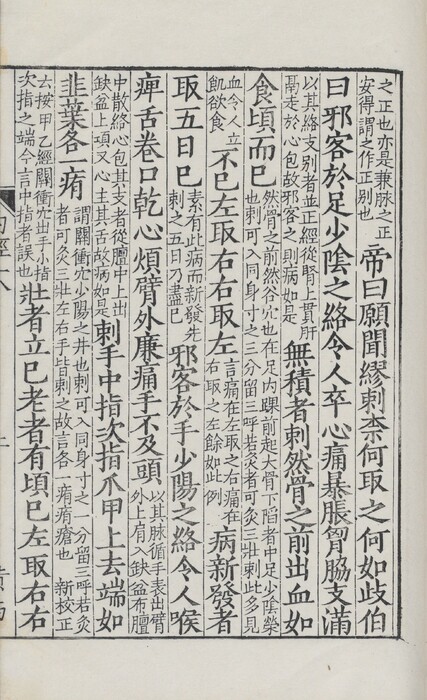 之正也亦是兼脉之正
安得謂之作正別也
帝曰願聞繆刺柰何取之何如歧伯
曰邪客於足少陰之絡令人卒心痛暴脹胷脇支滿
以其絡支別者並正經從腎上貫肝
鬲走於心包故邪客之則病如是
無積者刺然骨之前出血如
食頃而已
然骨之前然谷穴也在足内踝前起大骨下陷者中足少陰滎
也刺可入同身寸之三分留三呼若灸者可灸三壯刺此多見
血令人立
飢欲食
不已左取右右取左
言痛在左取之右痛在
右取之左餘如此例
病新發者
取五日已
素有此病而新發先
刺之五日乃盡已
邪客於手少陽之絡令人喉
痺舌卷口乾心煩臂外廉痛手不及頭
以其脉循手表出臂
外上肩入缺盆布膻
中散絡心包其支者從膻中上出
缺盆上項又心主其舌故病如是
刺手中指次指爪甲上去端如
韭葉各一痏
謂關衝穴少陽之井也刺可入同身寸之一分留三呼若灸
者可灸三壯左右手皆刺之故言各一痏痏瘡也 新校正
云按甲乙經關衝穴出手小指
次指之端今言中指者誤也
壯者立已老者有頃已左取右右